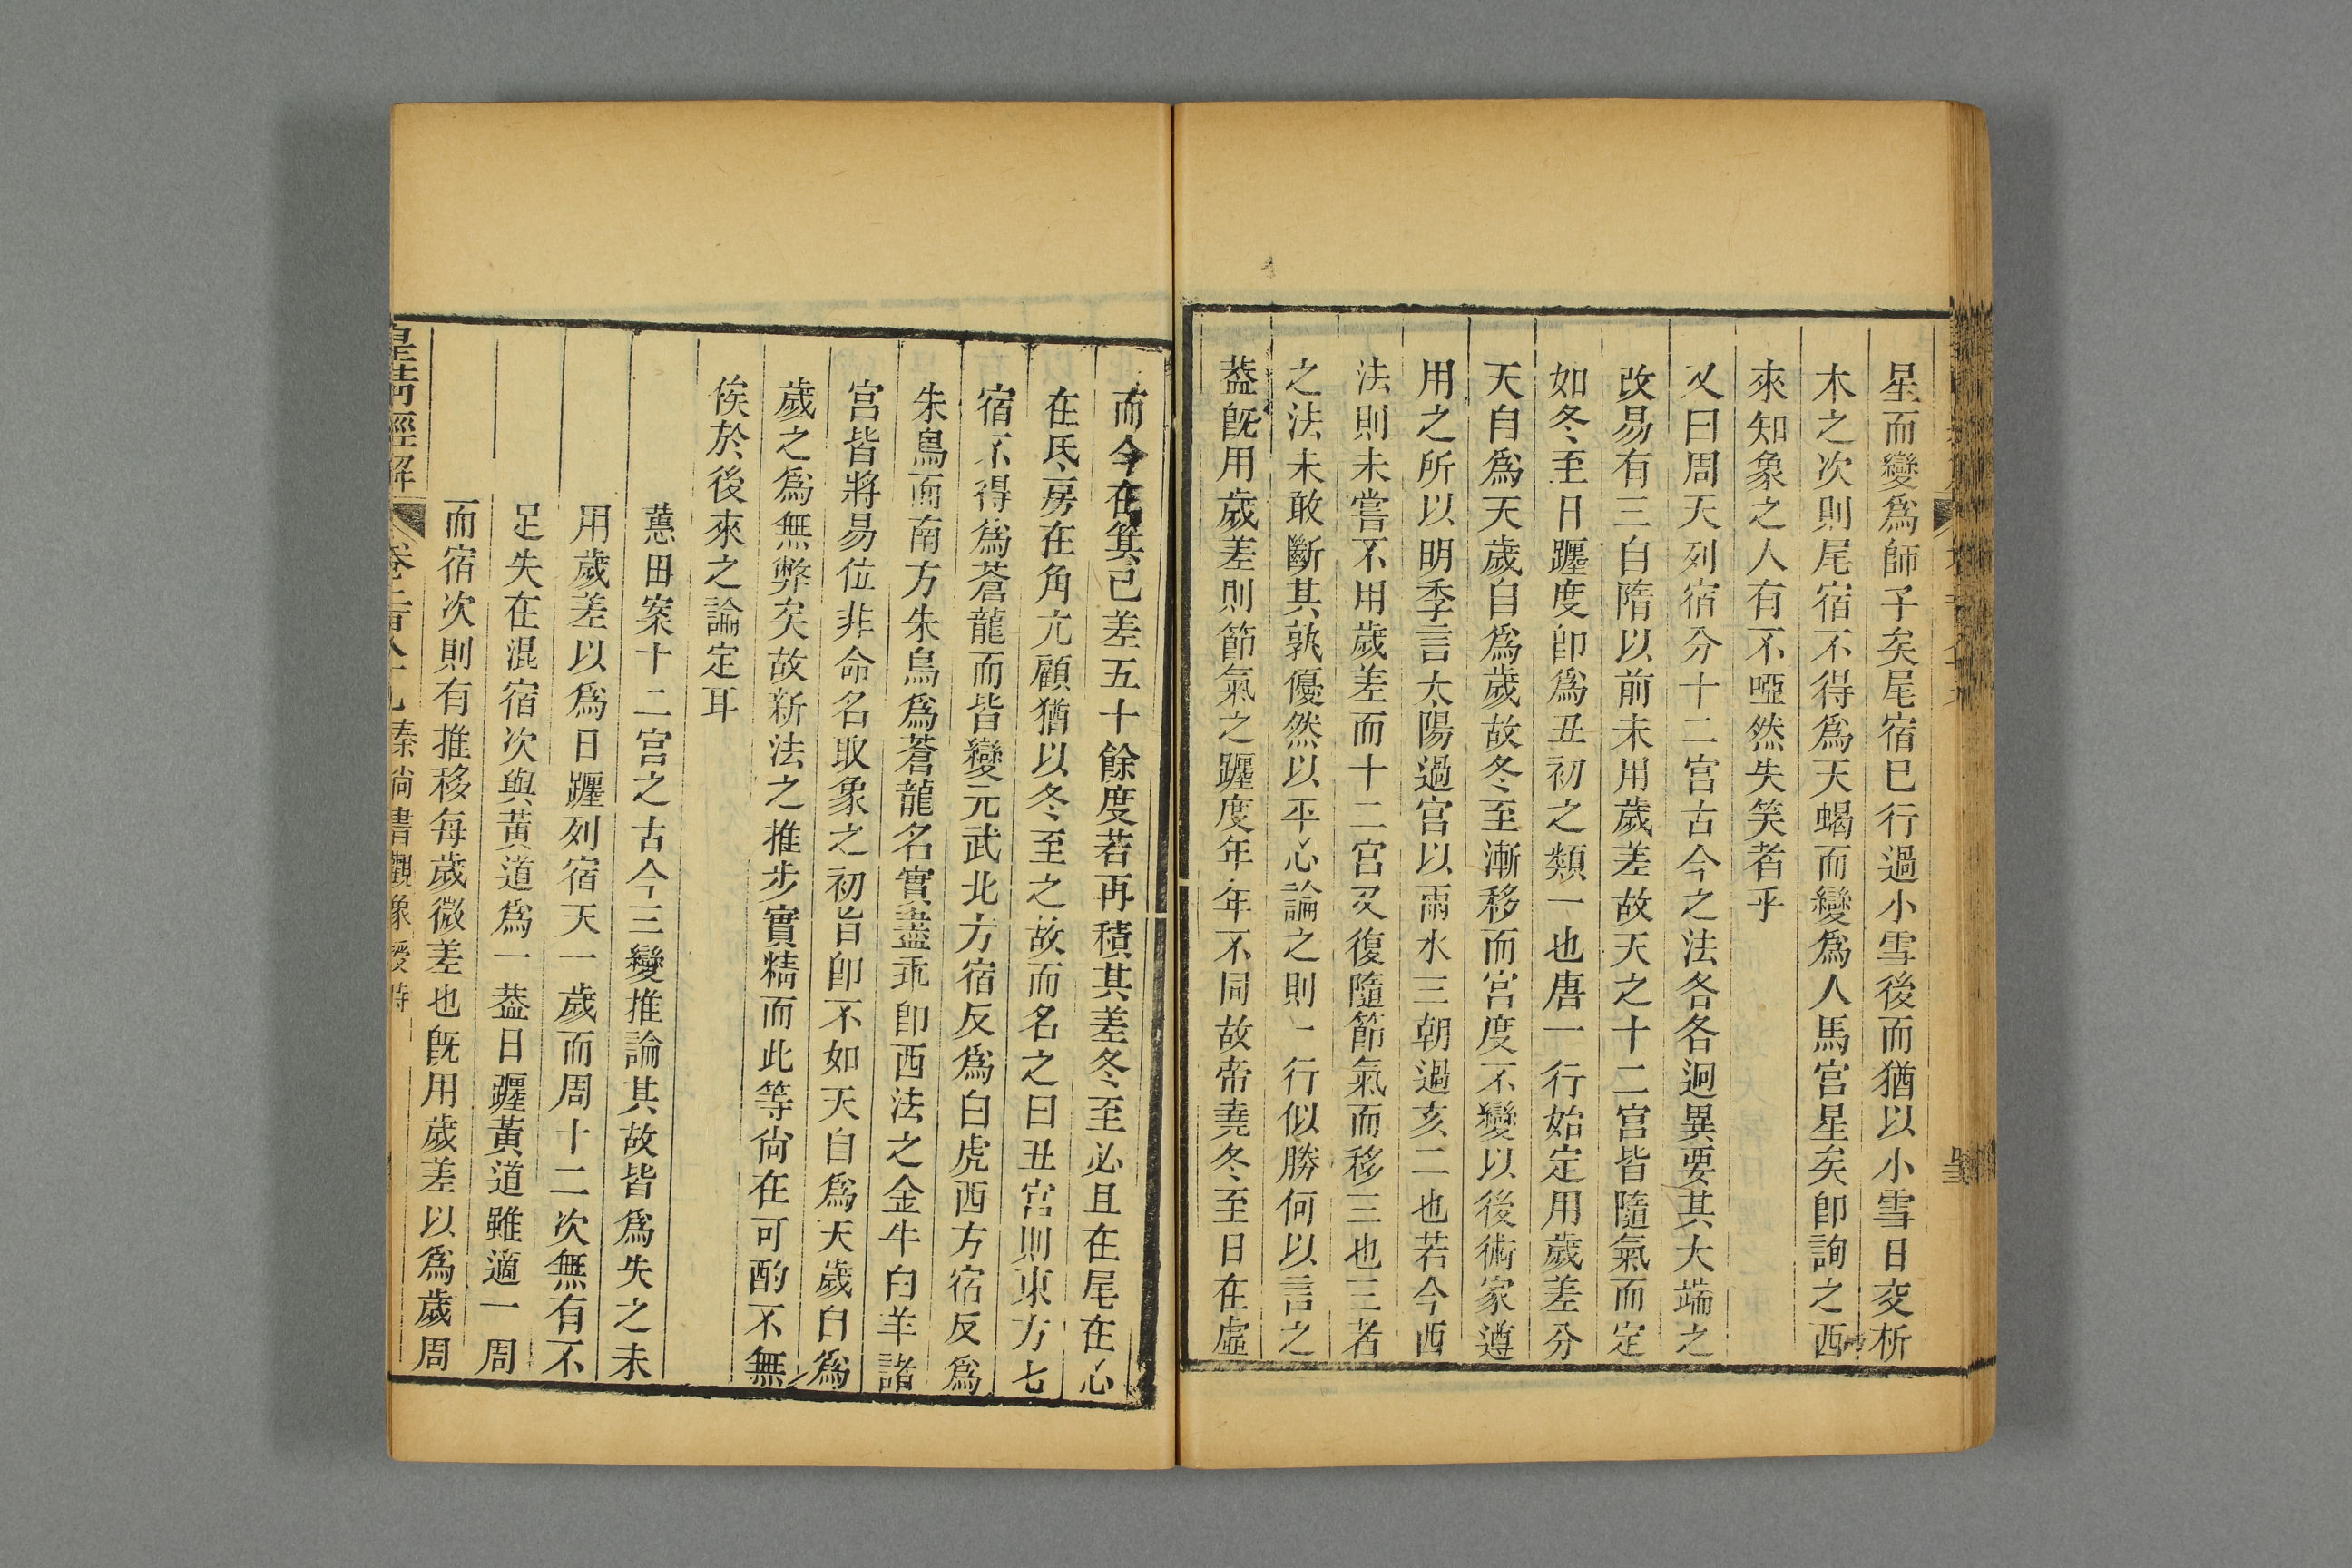 星而變爲師子矣尾宿巳行過小雪後而猶以小雪日交析
木之次則尾宿不得爲天蝎而變爲人馬宮星矣卽詢之西
來知象之人有不啞然失笑者乎
又曰周天列宿分十二宮古今之法各各迥異要其大端之
改易有三自隋以前未用歲差故天之十二宮皆隨氣而定
如冬至日躔度卽爲丑初之類一也唐一行始定用歲差分
天自爲天歲自爲歲故冬至漸移而宮度不變以後術家遵
用之所以明季言太陽過宮以雨水三朝過亥二也若今西
法則未嘗不用歲差而十二宮又復隨節氣而移三也三者
之法未敢斷其孰優然以平心論之則一行似勝何以言之
葢旣用歲差則節氣之躔度年年不同故帝堯冬至日在虛
而今在箕已差五十餘度若再積其差冬至必且在尾在心
在氐房在角亢顧猶以冬至之故而名之曰丑宮則東方七
宿不得爲蒼龍而皆變元武北方宿反爲白虎西方宿反爲
朱鳥而南方朱鳥爲蒼龍名實盡乖卽西法之金牛白羊諸
宮皆將易位非命名取象之初旨卽不如天自爲天歲自爲
歲之爲無弊矣故新法之推步實精而此等尙在可酌不無
俟於後來之論定耳
蕙田案十二宮之古今三變推論其故皆爲失之未
用歲差以爲日躔列宿天一歲而周十二次無有不
足失在混宿次與黃道爲一葢日躔黃道雖適一周
而宿次則有推移每歲微差也旣用歲差以爲歲周
皇清經解
卷二百八十九秦尙書觀象授時